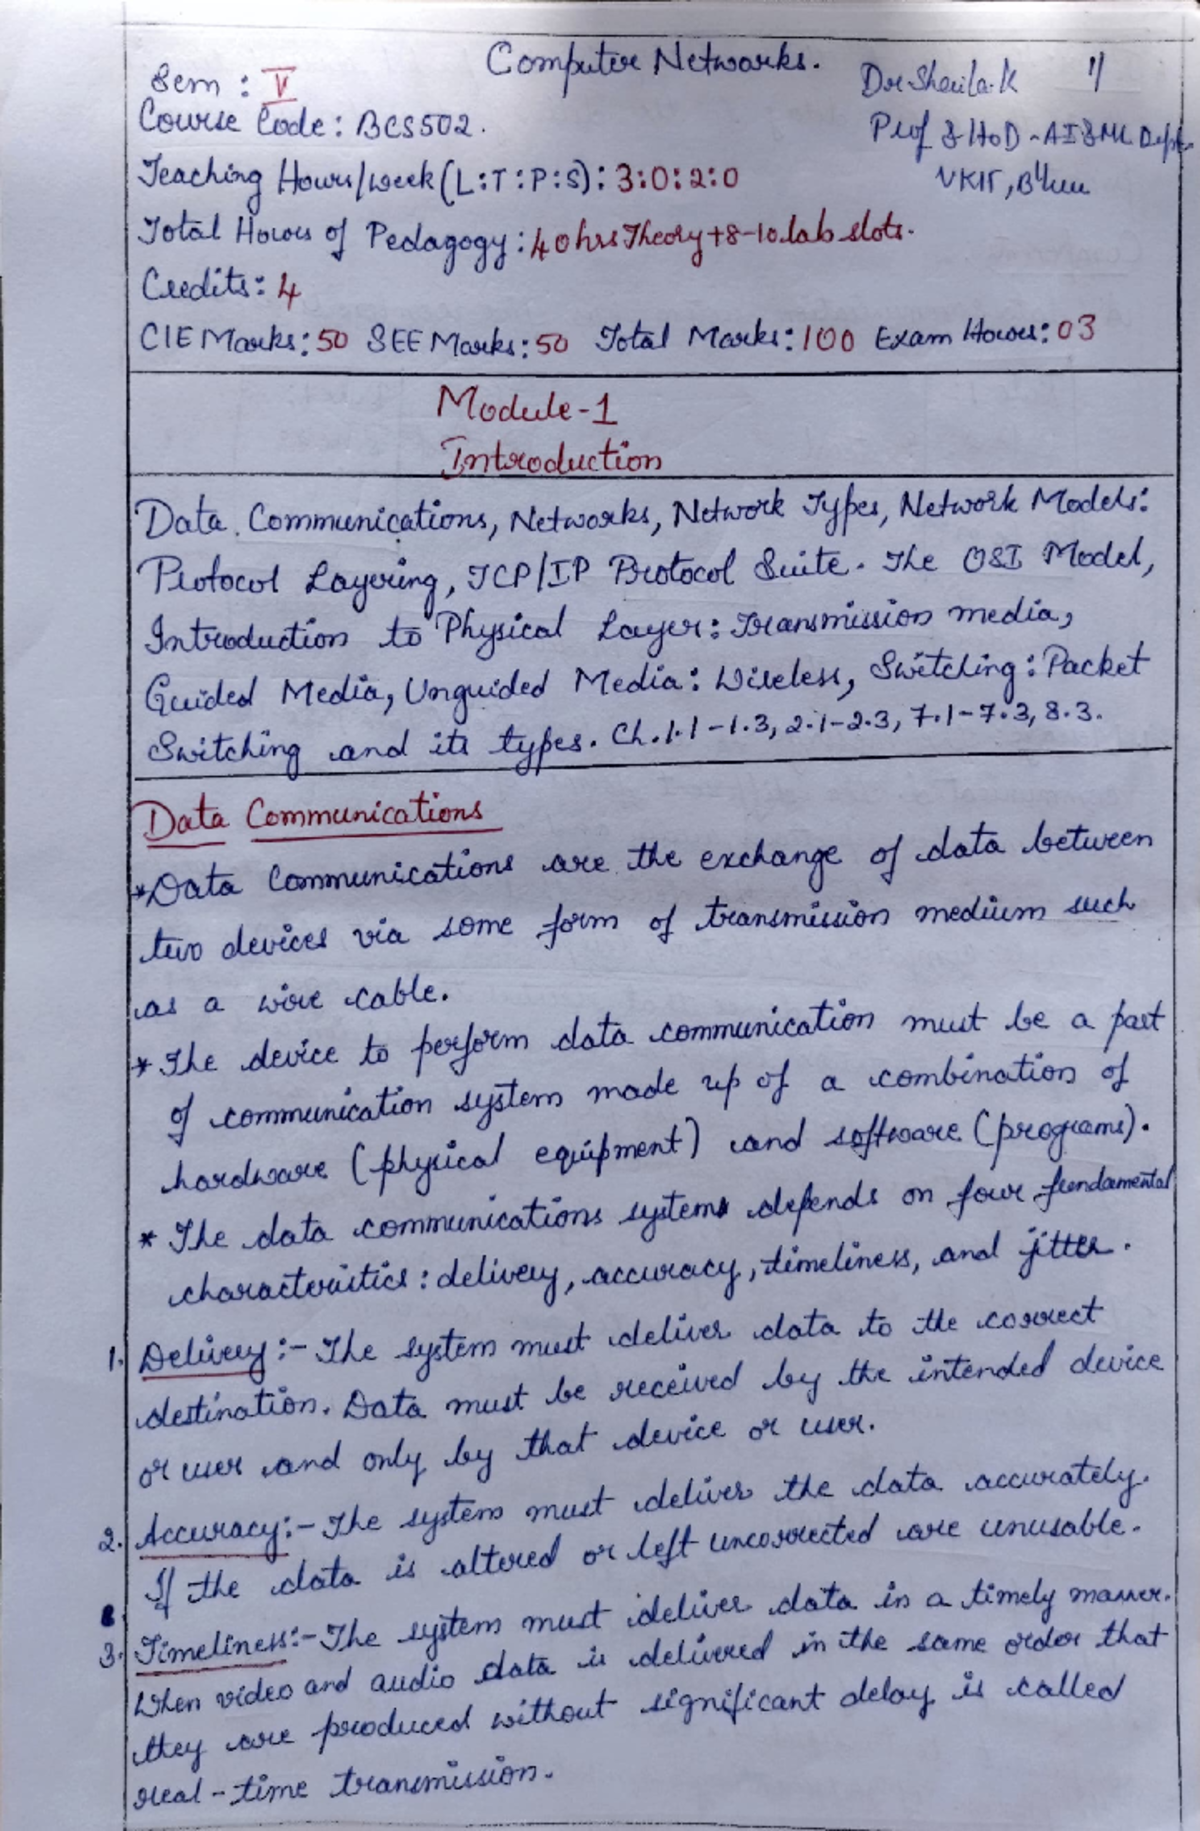 Computer Networks.
1/
Sem : V
Dr. Shaila.K
Course Code : BCS502.
Prof & HoD - AI&ML Dept.
Teaching Hours/week (L:T:P:S): 3:0:2:0
VKIT, B'luru
Total Hours of Pedagogy: 40 hrs Theory + 8-10 lab slots.
Credits: 4
CIE Marks: 50 SEE Marks: 50 Total Marks: 100 Exam Hours: 03
Module-1
Introduction
Data Communications, Networks, Network Types, Network Models:
Protocol Layering, TCP/IP Protocol Suite. The OSI Model,
Introduction to Physical Layer: Transmission media,
Guided Media, Unguided Media: Wireless, Switching: Packet
Switching and its types. Ch. 1.1-1.3, 2.1-2.3, 7.1-7.3, 8.3.
Data Communications
*Data Communications are the exchange of data between
two devices via some form of transmission medium such
as a wire cable.
* The device to perform data communication must be a part
of communication system made up of a combination of
hardware (physical equipment) and software (programs).
* The data communications systems depends on four fundamental
characteristics: delivery, accuracy, timeliness, and jitter.
1. Delivery:- The system must deliver data to the correct
destination. Data must be received by the intended device
or user and only by that device or user.
2. Accuracy:- The system must deliver the data accurately.
If the data is altered or left uncorrected are unusable.
3. Timeliness:- The system must deliver data in a timely manner.
When video and audio data is delivered in the same order that
they are produced without significant delay is called
real-time transmission.